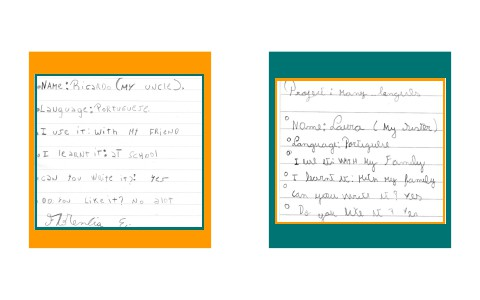 NAME: RICARDO (MY UNCLE).
LANGUAGE: PORTUGUESE
I USE IT: WITH MY FRIEND
I LEARNT IT: AT SCHOOL
CAN YOU WRITE IT?: YES
DO YOU LIKE IT? NO ALOT
Project: many
Name: Laura (My sister)
Language: Portuguese
I use it: with My Family
I learnt it: With my family
can you write it? yes
Do you like it? Yes